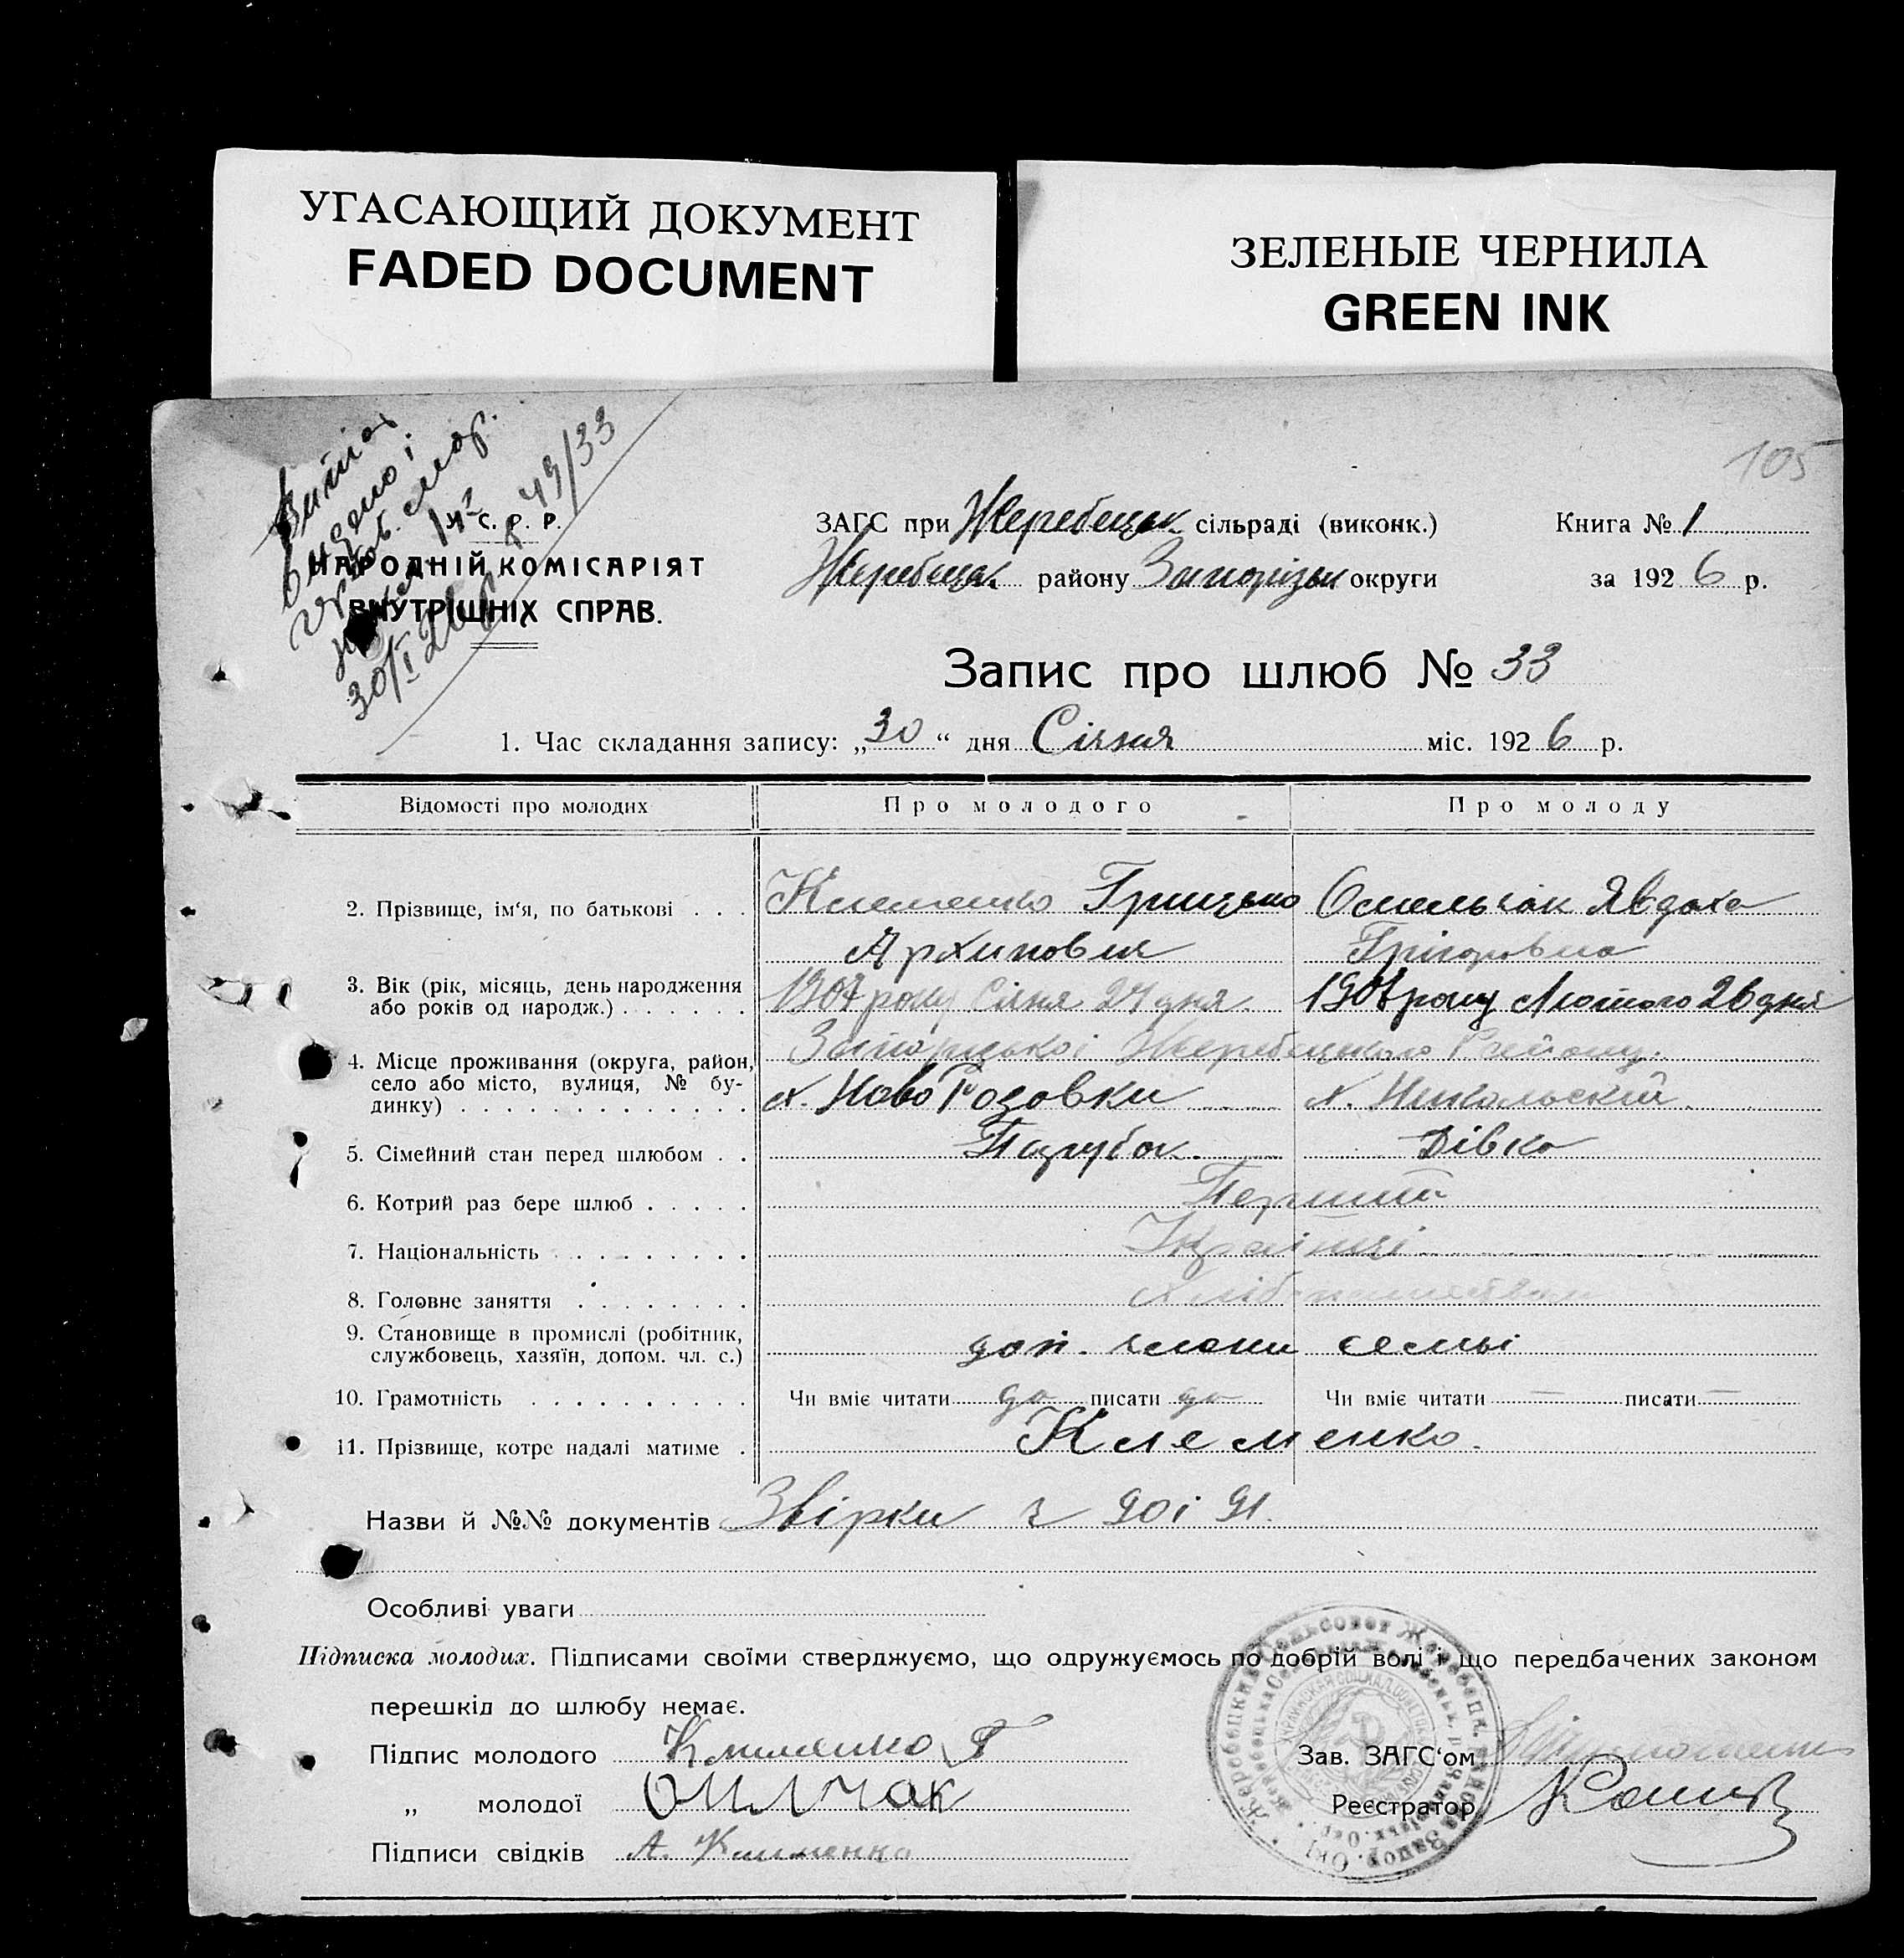 УГАСАЮЩИЙ ДОКУМЕНТ
FADED DOCUMENT
ЗЕЛЕНЫЕ ЧЕРНИЛА
GREEN INK
105
49/33
30/I 26 р
У. С. Р. Р.
НАРОДНІЙ КОМІСАРІЯТ
ВНУТРІШНІХ СПРАВ.
ЗАГС при Жеребецьк. сільраді (виконк.) Книга № 1
Жеребецьк. району Запорізьк округи за 1926 р.
Запис про шлюб № 33
1. Час складання запису: „30“ дня Січня міс. 1926 р.
Відомості про молодих Про молодого Про молоду
2. Прізвище, ім‘я, по батькові . . . Клеменко Грицько Омельчак Явдоха
Архипович Грігоровна
3. Вік (рік, місяць, день народження 1907 року Січня 24 дня. 190 року Лютого 26 дня
або років од народж.) . . . . . .
Запорізької Жеребецького Району.
4. Місце проживання (округа, район,
село або місто, вулиця, № бу- х. Ново Розовки х. Никольский.
динку) . . . . . . . . . . . . .
5. Сімейний стан перед шлюбом . . Парубок. Дівка
6. Котрий раз бере шлюб . . . . . Перший
7. Національність . . . . . . . . Українці
8. Головне заняття . . . . . . . .
9. Становище в промислі (робітник, доп. члени семьі
службовець, хазяїн, допом. чл. с.)
10. Грамотність . . . . . . . . . . Чи вміє читати да писати да Чи вміє читати — писати —
11. Прізвище, котре надалі матиме . Клеменко.
Назви й №№ документів Звірки ч 90 і 91.
Особливі уваги
Підписка молодих. Підписами своїми стверджуємо, що одружуємось по добрій волі і що передбачених законом
перешкід до шлюбу немає.
Підпис молодого Клименко Г Зав. ЗАГС‘ом
„ молодої Омлчак Реєстратор
Підписи свідків А. Клименко